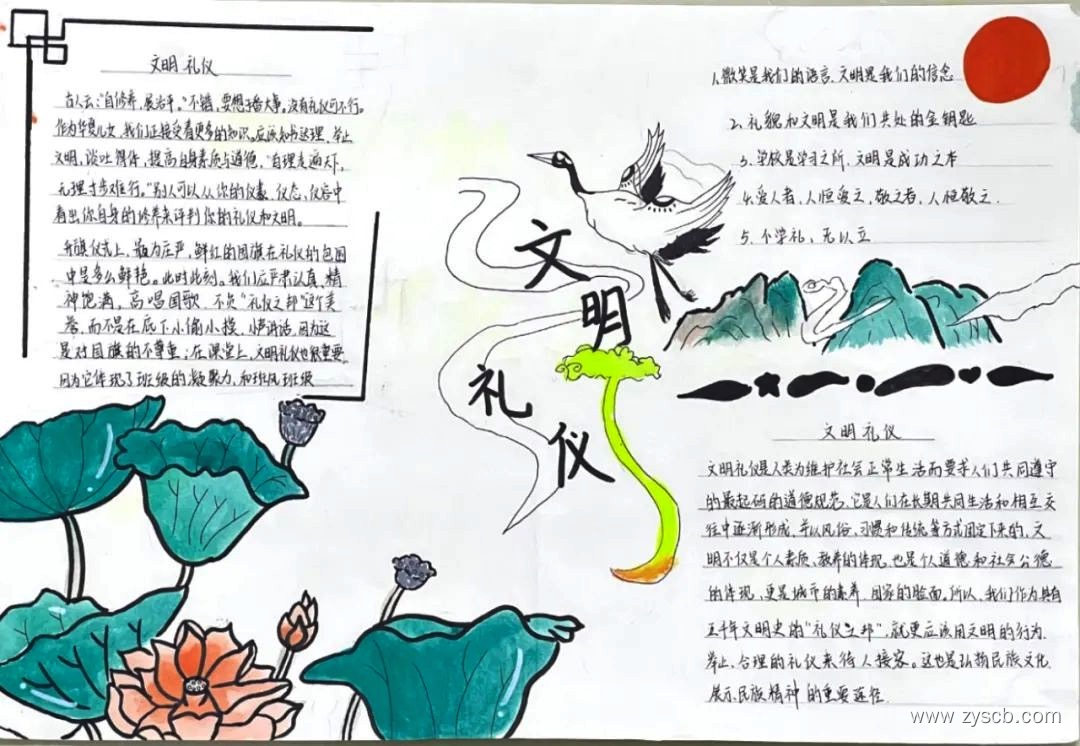 文明礼仪
古人云:"自修养,展治平。"不错,要想干番大事。没有礼仪可不行。
作为华夏儿女,我们正接受着更多的知识。应该知书达理,举止
文明,谈吐得体,提高自身素质与道德,"自理走遍天下,
无理寸步难行。"别人可以从你的仪表、仪态、仪容中
看出你自身的修养来评判你的礼仪和文明。
升旗仪式上,最为庄严,鲜红的国旗在礼仪的包围
中是多么鲜艳。此时此刻。我们应严肃认真,精
神饱满,高唱国歌,不负"礼仪之邦"这个美
誉,而不是在底下小偷小摸,小声讲话,因为这
是对国旗的不尊重;在课堂上,文明礼仪也很重要
因为它体现了班级的凝聚力,和班风班级
文明礼仪
1.微笑是我们的语言,文明是我们的信念
2.礼貌和文明是我们共处的金钥匙
3.学校是学习之所,文明是成功之本
4.爱人者,人恒爱之,敬之者,人恒敬之.
5.不学礼,无以立
文明礼仪
文明礼仪是人类为维护社会正常生活而要求人们共同遵守
的最起码的道德规范,它是人们在长期共同生活和相互交
往中逐渐形成,并以风俗、习惯和传统等方式固定下来的,文
明不仅是个人素质、教养的体现,也是个人道德和社会公德
的体现,更是城市的素养 国家的脸面。所以,我们作为具有
五千年文明史的"礼仪之邦",就更应该用文明的行为.
举止,合理的礼仪来待人接客。这也是弘扬民族文化
展示民族精神的重要途径.
www.zyscb.com